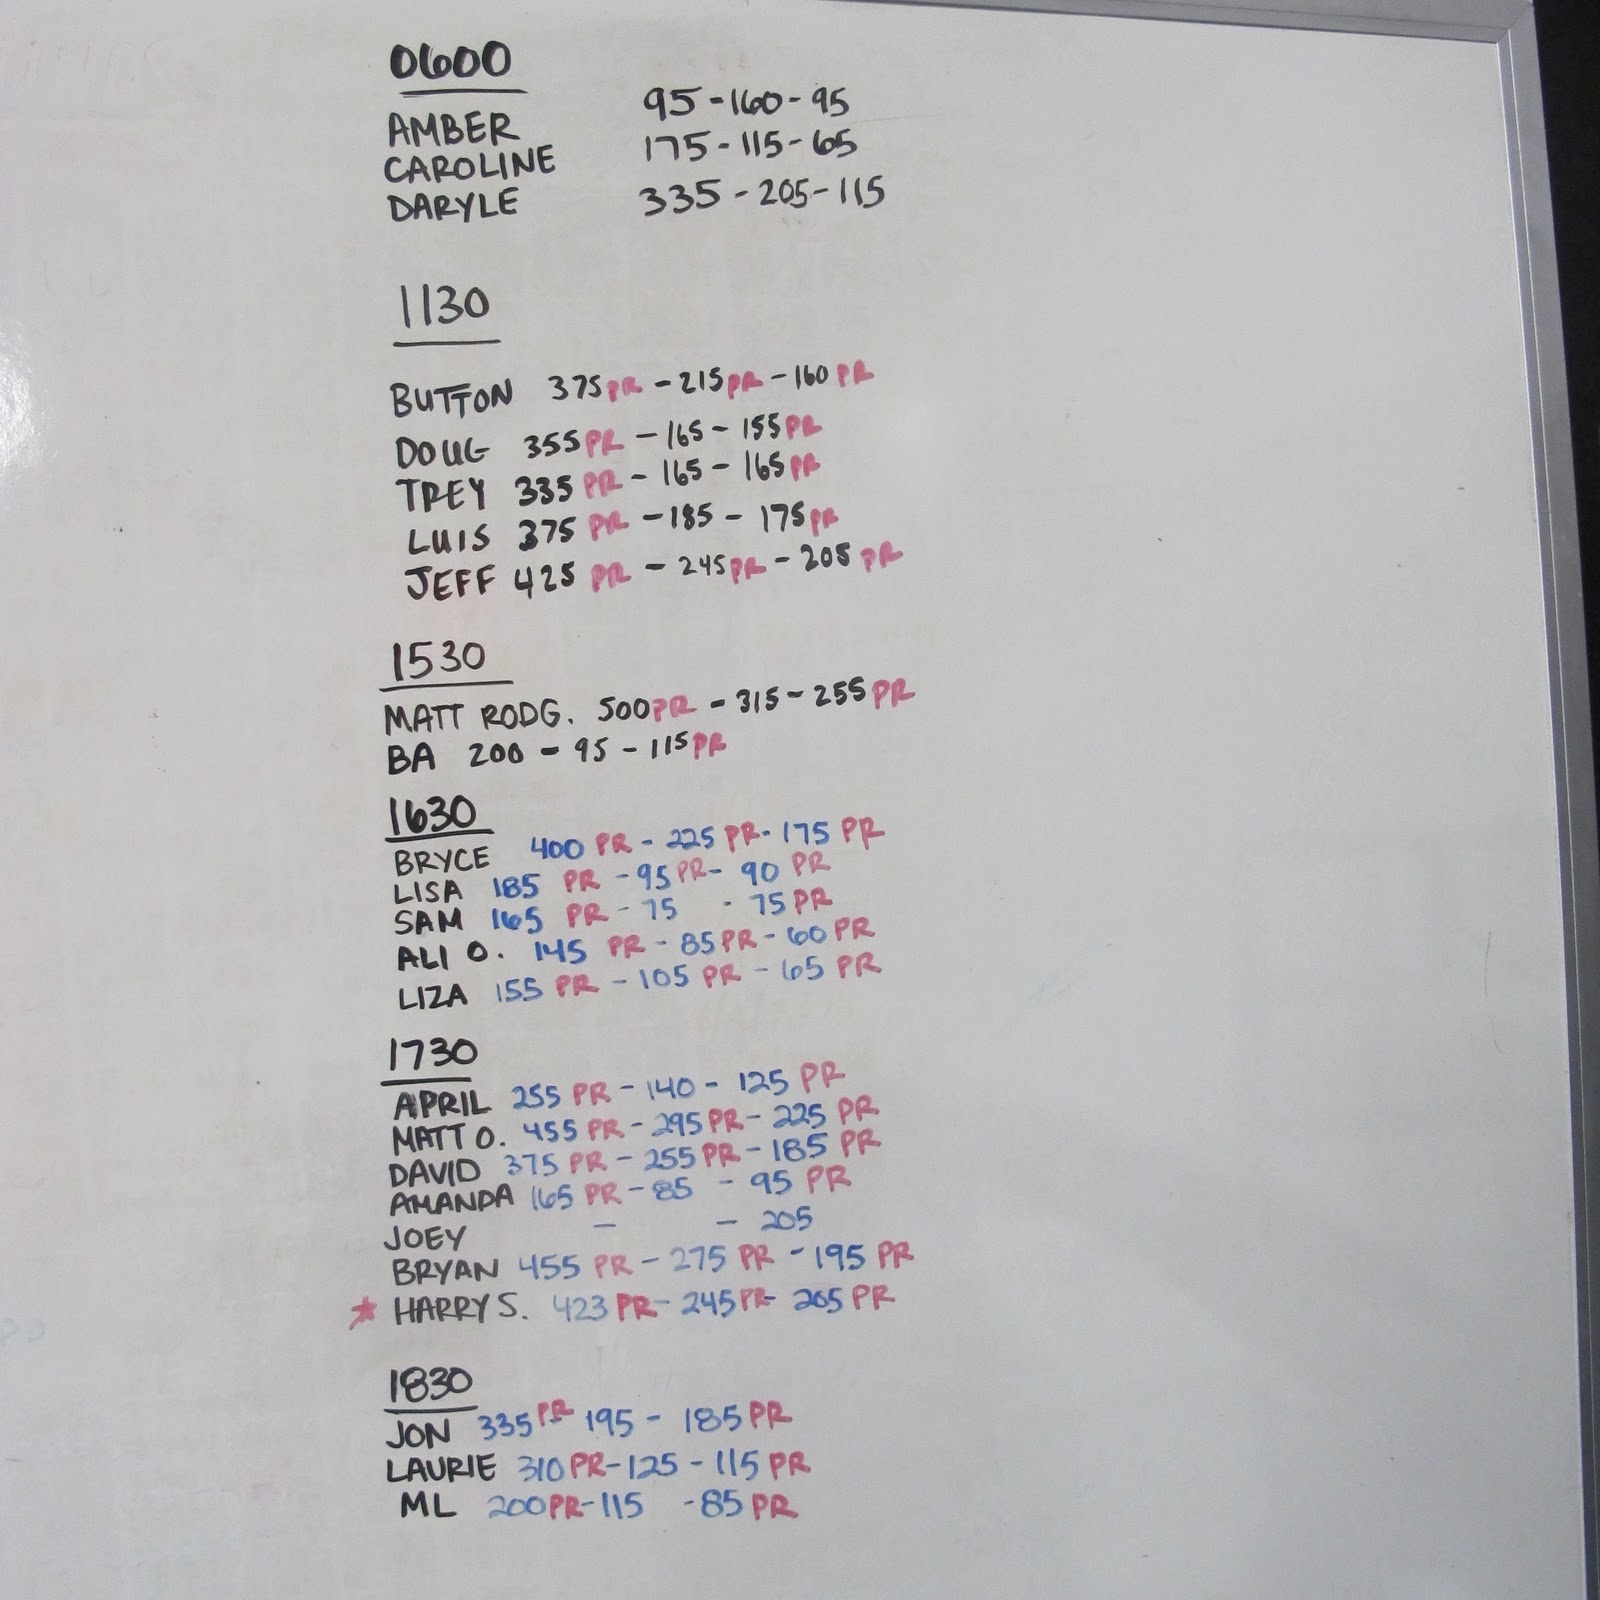 0600
AMBER 95-160-95
CAROLINE 175-115-65
DARYLE 335-205-115
1130
BUTTON 375 PR - 215 PR - 160 PR
DOUG 355 PR - 165 - 155 PR
TREY 335 PR - 165 - 165 PR
LUIS 375 PR - 185 - 175 PR
JEFF 425 PR - 245 PR - 205 PR
1530
MATT RODG. 500 PR - 315 - 255 PR
BA 200 - 95 - 115 PR
1630
BRYCE 400 PR - 225 PR - 175 PR
LISA 185 PR - 95 PR - 90 PR
SAM 165 PR - 75 - 75 PR
ALI O. 145 PR - 85 PR - 60 PR
LIZA 155 PR - 105 PR - 65 PR
1730
APRIL 255 PR - 140 - 125 PR
MATT O. 455 PR - 295 PR - 225 PR
DAVID 375 PR - 255 PR - 185 PR
AMANDA 165 PR - 85 - 95 PR
JOEY - - 205
BRYAN 455 PR - 275 PR - 195 PR
HARRY S. 423 PR - 245 PR - 205 PR
1830
JON 335 PR - 195 - 185 PR
LAURIE 310 PR - 125 - 115 PR
ML 200 PR - 115 - 85 PR